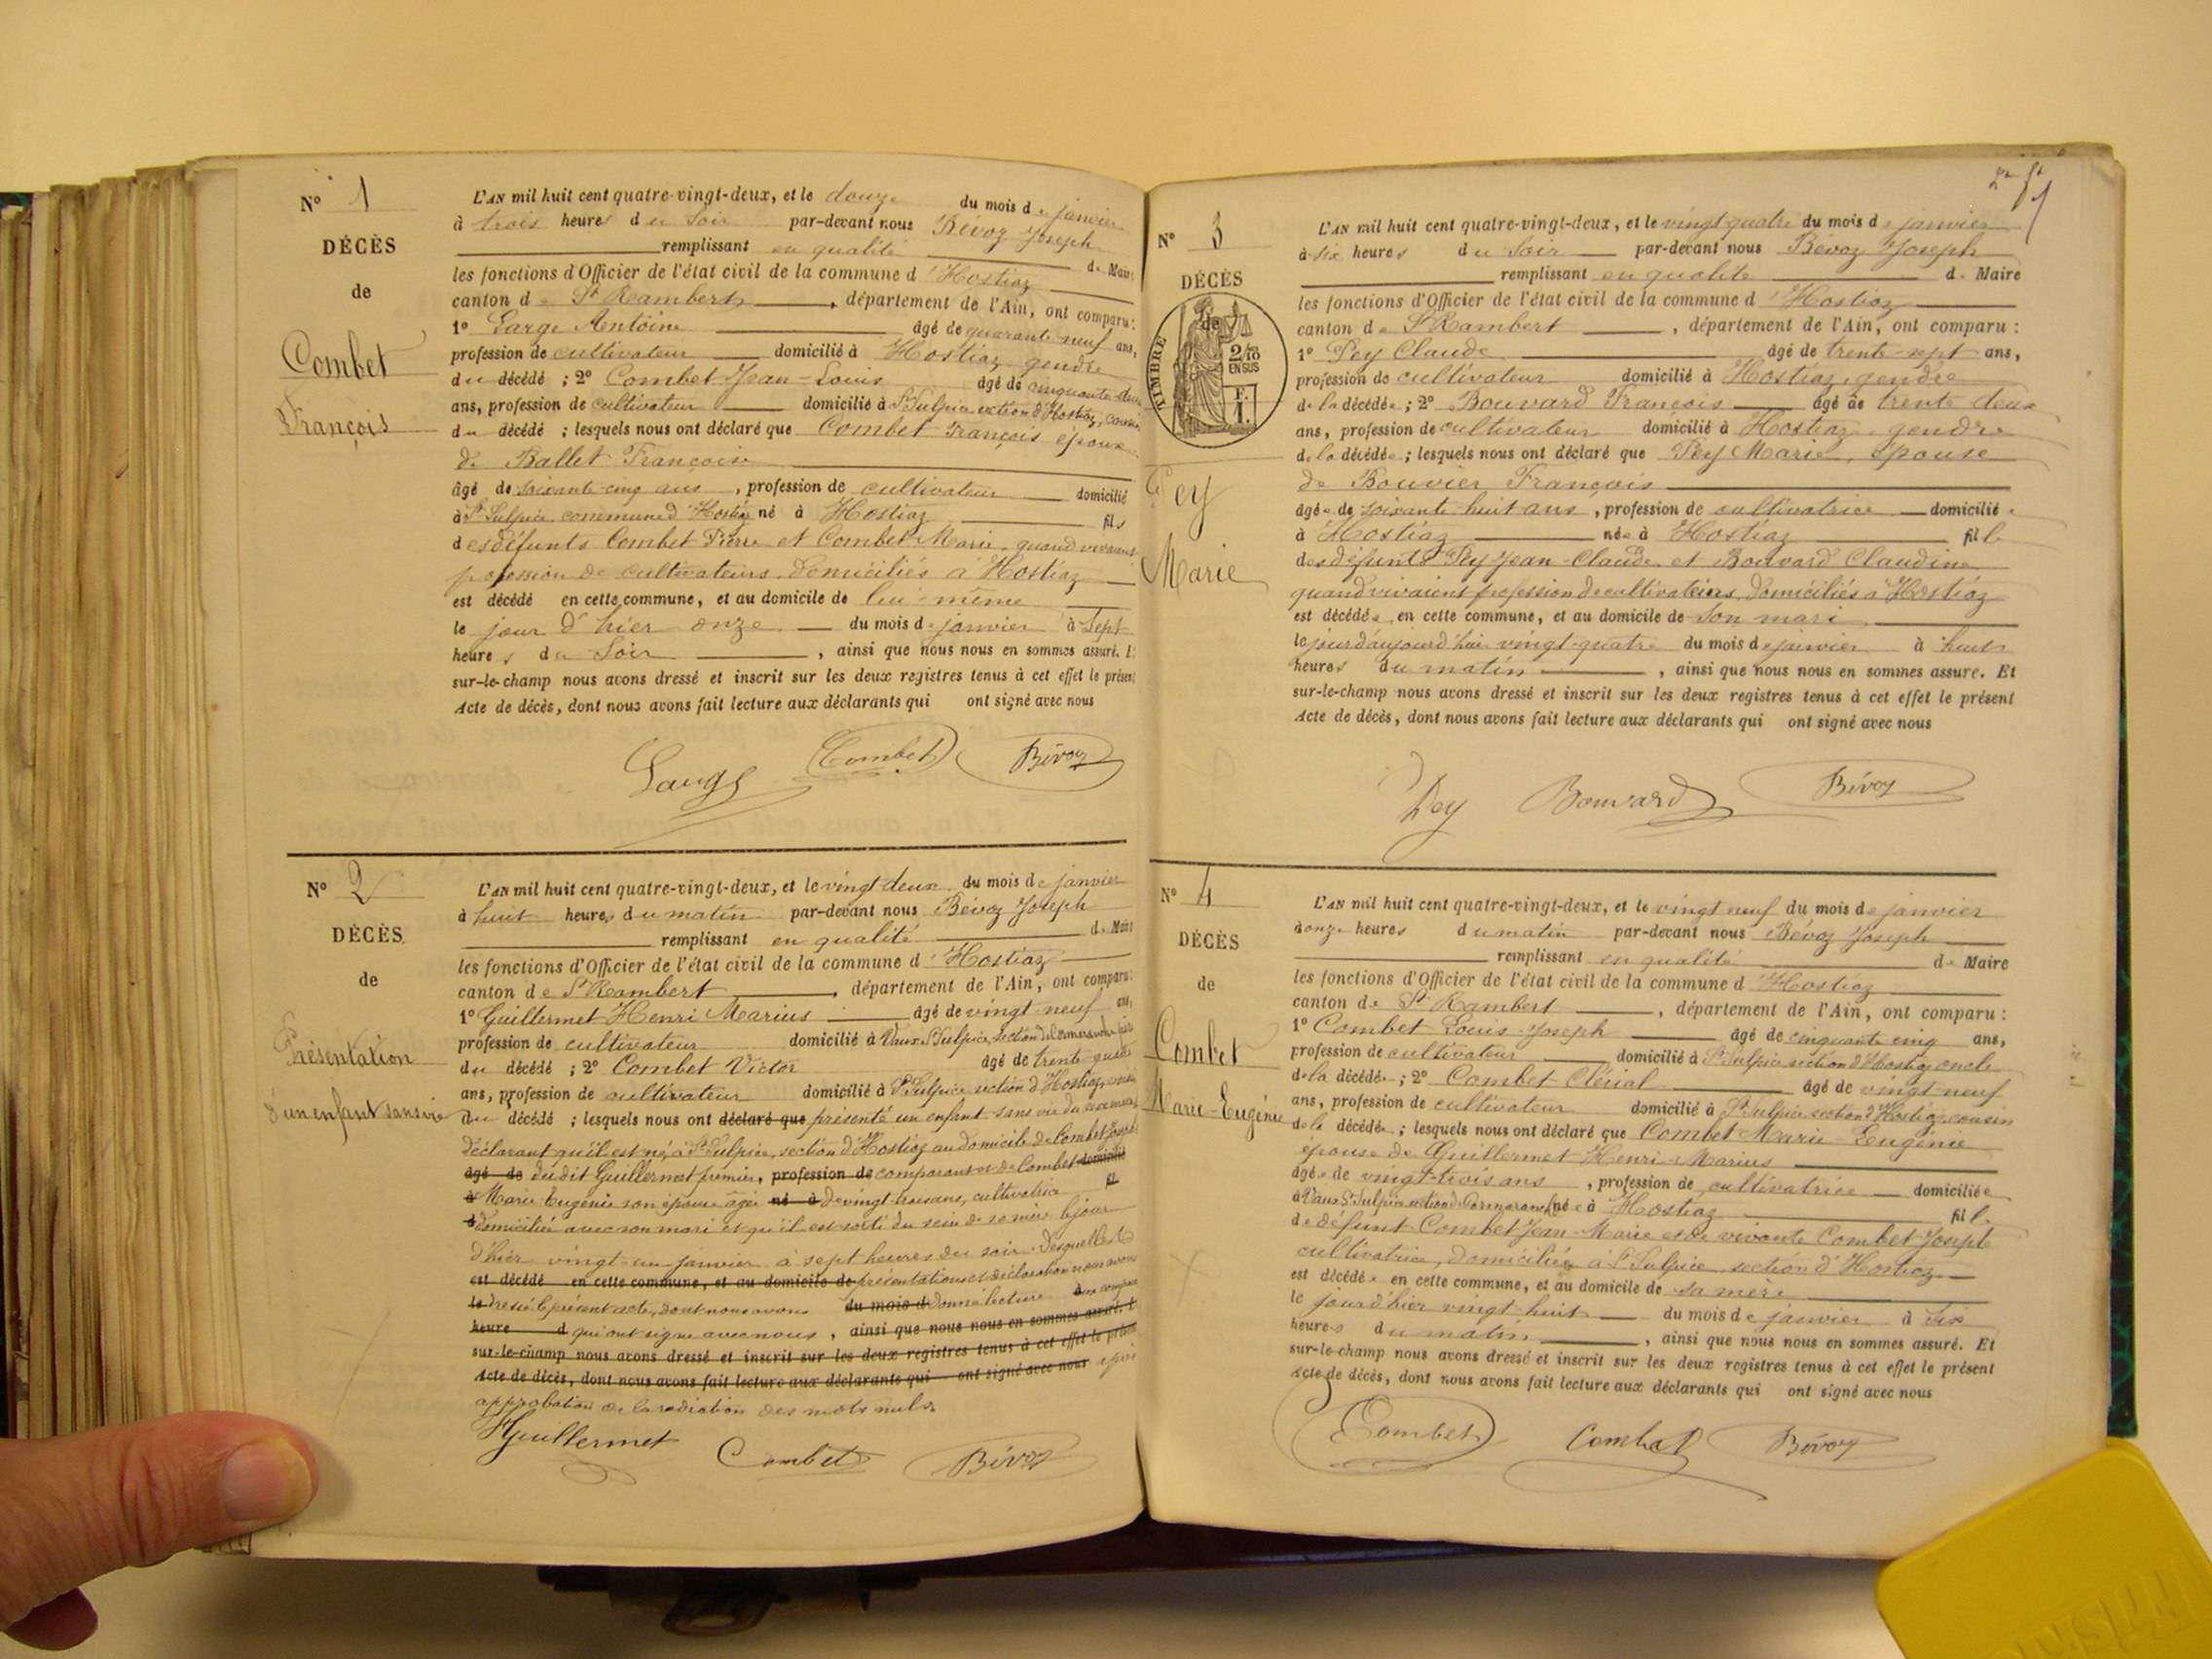 N° 1
DÉCÈS
de
Combet
François
L'AN mil huit cent quatre-vingt-deux, et le douze du mois de janvier
à trois heures du soir par-devant nous Bévoz Joseph
remplissant en qualité de Maire
les fonctions d'Officier de l'état civil de la commune d'Hostiaz
canton de St Rambert, département de l'Ain, ont comparu:
1° Large Antoine âgé de quarante neuf ans,
profession de cultivateur domicilié à Hostiaz gendre
du décédé ; 2° Combet Jean-Louis âgé de cinquante deux
ans, profession de cultivateur domicilié à St Sulpice section d'Hostiaz, cousin
du décédé ; lesquels nous ont déclaré que Combet François époux
de Ballet Françoise
âgé de soixante-cinq ans, profession de cultivateur domicilié
à St Sulpice commune d'Hostiaz né à Hostiaz fils
des défunts Combet Pierre et Combet Marie, quand vivaient
profession de cultivateurs domiciliés à Hostiaz
est décédé en cette commune, et au domicile de lui-même
le jour d'hier onze du mois de janvier à sept
heures du soir, ainsi que nous nous en sommes assuré. E
sur-le-champ nous avons dressé et inscrit sur les deux registres tenus à cet effet le présent
Acte de décès, dont nous avons fait lecture aux déclarants qui ont signé avec nous
Combet Bévoz
N° 2
DÉCÈS
de
Présentation
d'un enfant sans vie
L'AN mil huit cent quatre-vingt-deux, et le vingt deux du mois de janvier
à huit heures du matin par-devant nous Bévoz Joseph
remplissant en qualité de Maire
les fonctions d'Officier de l'état civil de la commune d'Hostiaz
canton de St Rambert, département de l'Ain, ont comparu:
1° Guillermet Henri Marius âgé de vingt neuf ans,
profession de cultivateur domicilié à Vaux St Sulpice, section de
du décédé ; 2° Combet Victor âgé de trente quatre
ans, profession de cultivateur domicilié à St Sulpice section d'Hostiaz,
du décédé ; lesquels nous ont déclaré que présenté un enfant sans vie du
déclarant qu'il est né à St Sulpice, section d'Hostiaz au domicile de Combet Joseph
âgé de dudit Guillermet premier, profession de comparant et de Combet domicilié
à Marie Eugénie son épouse âgée né à de vingt trois ans, cultivatrice fil
d domiciliée avec son mari et qu'il est sorti du sein de sa mère le jour
d'hier vingt-un janvier à sept heures du soir. Desquelles
est décédé en cette commune, et au domicile de présentation et déclaration nous avons
le dressé le présent acte, dont nous avons du mois d donné lecture aux
heure d qui ont signé avec nous, ainsi que nous nous en sommes assuré. E
sur-le-champ nous avons dressé et inscrit sur les deux registres tenus à cet effet le présent
Acte de décès, dont nous avons fait lecture aux déclarants qui ont signé avec nous après
approbation de la radiation des mots nuls.
HGuillermet Combet Bévoz
N° 3
DÉCÈS
de
TIMBRE
2/10
EN SUS
F.
1.
Pey
Marie
L'AN mil huit cent quatre-vingt-deux, et le vingt quatre du mois de janvier
à six heures du soir par-devant nous Bévoz Joseph
remplissant en qualité de Maire
les fonctions d'Officier de l'état civil de la commune d'Hostiaz
canton de St Rambert, département de l'Ain, ont comparu :
1° Pey Claude âgé de trente-sept ans,
profession de cultivateur domicilié à Hostiaz, gendre
de la décédée ; 2° Bouvard François âgé de trente deux
ans, profession de cultivateur domicilié à Hostiaz gendre
de la décédée ; lesquels nous ont déclaré que Pey Marie, épouse
de Bouvier François
âgée de soixante-huit ans, profession de cultivatrice domiciliée
à Hostiaz née à Hostiaz fille
des défunts Pey Jean-Claude et Bouvard Claudine
quand vivaient profession de cultivateurs domiciliés à Hostiaz
est décédée en cette commune, et au domicile de son mari
le jour d'aujourd'hui vingt-quatre du mois de janvier à huit
heures du matin, ainsi que nous nous en sommes assuré. Et
sur-le-champ nous avons dressé et inscrit sur les deux registres tenus à cet effet le présent
Acte de décès, dont nous avons fait lecture aux déclarants qui ont signé avec nous
Pey Bouvard Bévoz
N° 4
DÉCÈS
de
Combet
Marie-Eugénie
L'AN mil huit cent quatre-vingt-deux, et le vingt neuf du mois de janvier
à onze heures du matin par-devant nous Bévoz Joseph
remplissant en qualité de Maire
les fonctions d'Officier de l'état civil de la commune d'Hostiaz
canton de St Rambert, département de l'Ain, ont comparu :
1° Combet Louis-Joseph âgé de cinquante cinq ans,
profession de cultivateur domicilié à St Sulpice section d'Hostiaz oncle
de la décédée ; 2° Combet Clérial âgé de vingt-neuf
ans, profession de cultivateur domicilié à St Sulpice section d'Hostiaz, cousin
de la décédée ; lesquels nous ont déclaré que Combet Marie-Eugénie
épouse de Guillermet Henri-Marius
âgée de vingt-trois ans, profession de cultivatrice domiciliée
à Vaux St Sulpice section de née à Hostiaz fille
de défunt Combet Jean-Marie et de vivante Combet Josepte
cultivatrice, domiciliée à St Sulpice section d'Hostiaz
est décédée en cette commune, et au domicile de sa mère
le jour d'hier vingt-huit du mois de janvier à six
heures du matin, ainsi que nous nous en sommes assuré. Et
sur-le-champ nous avons dressé et inscrit sur les deux registres tenus à cet effet le présent
Acte de décès, dont nous avons fait lecture aux déclarants qui ont signé avec nous
Combet Combet Bévoz